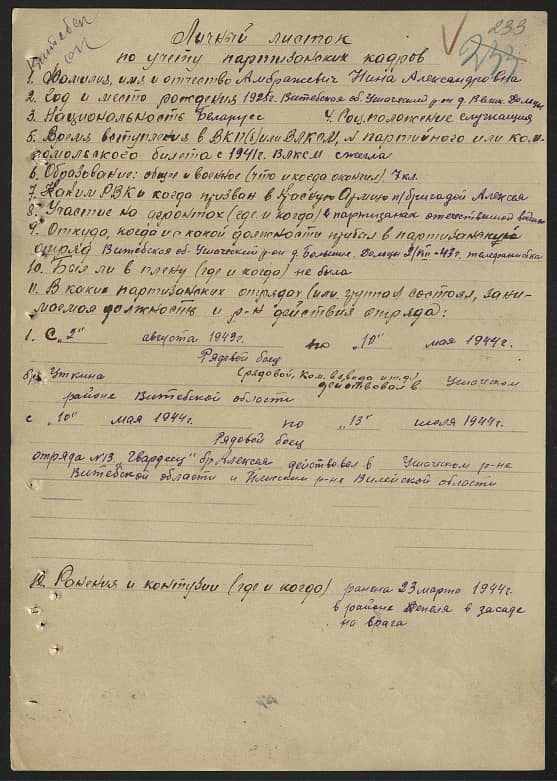 Витебск
обл
233
233
Личный листок
по учету партизанских кадров
1. Фамилия, имя и отчество Амбражевич Нина Александровна
2. Год и место рождения 1925г. Витебская об. Ушачский р-он д. Больш. Дольцы
3. Национальность Беларус 4. Соц. положение служащая
5. Время вступления в ВКП(б) или ВЛКСМ, № партийного или ком-
сомольского билета с 1941г. ВЛКСМ сожгла
6. Образование: общее и военное (что и когда окончил) 7 кл.
7. Каким РВК и когда призван в Красную Армию п/бригадой Алексея
8. Участие на фронтах (где и когда) в партизанах отечественной войны
9. Откуда, когда и с какой должности прибыл в партизанский
отряд Витебская об. Ушачский р-он д. Большие Дольцы 2/VIII-43г. телефонистка
10. Был ли в плену (где и когда) не была
11. В каких партизанских отрядах (или группах) состоял, зани-
маемая должность и р-н действия отряда:
1. С „2" августа 1943г. по „10" мая 1944г.
Рядовой боец
(рядовой, ком. взвода и т.д.)
бр. Уткина действовал в Ушачском
районе Витебской области
с „10" мая 1944г. по „13" июля 1944г.
Рядовой боец
отряда №13 „Гвардеец" бр. Алексея действовал в Ушачском р-не
Витебской области и Плисском р-не Вилейской области
12. Ранения и контузии (где и когда) ранена 23 марта 1944г.
в районе Лепеля в засаде
на врага